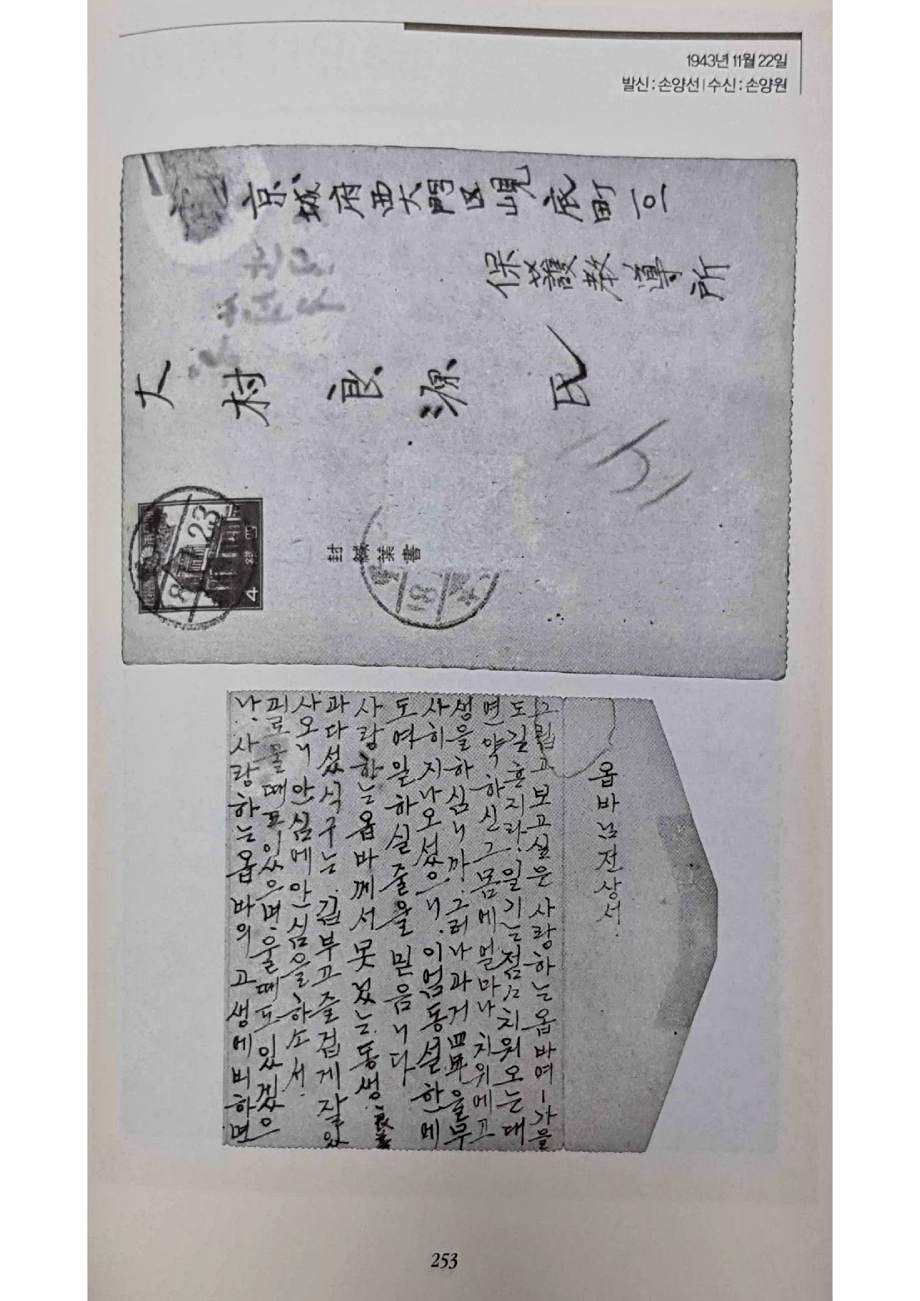 1943년 11월 22일
발신 : 손양선 | 수신 : 손양원
京城府西大門区峴底町
保護教導所
大村良源氏
封緘葉書
4
옵바님전상서.
그립고보고실은사랑하는옵바여ー가을
도길흔지라.일기는점々치워오는대
면약하신그몸에얼마나치위에고
생을하심니까.그러나과거四年을무
사히지나오섰으니.이엄동설한에
도여일하실줄을믿음니다.
사랑하는옵바께서못잊는.동생.良善
과다섯식구는.깁부고즐겁게잘있
사오니안심에안심을하소서.
괴로울때도있으며울때도있겠으
나.사랑하는옵바의고생에비하면
253